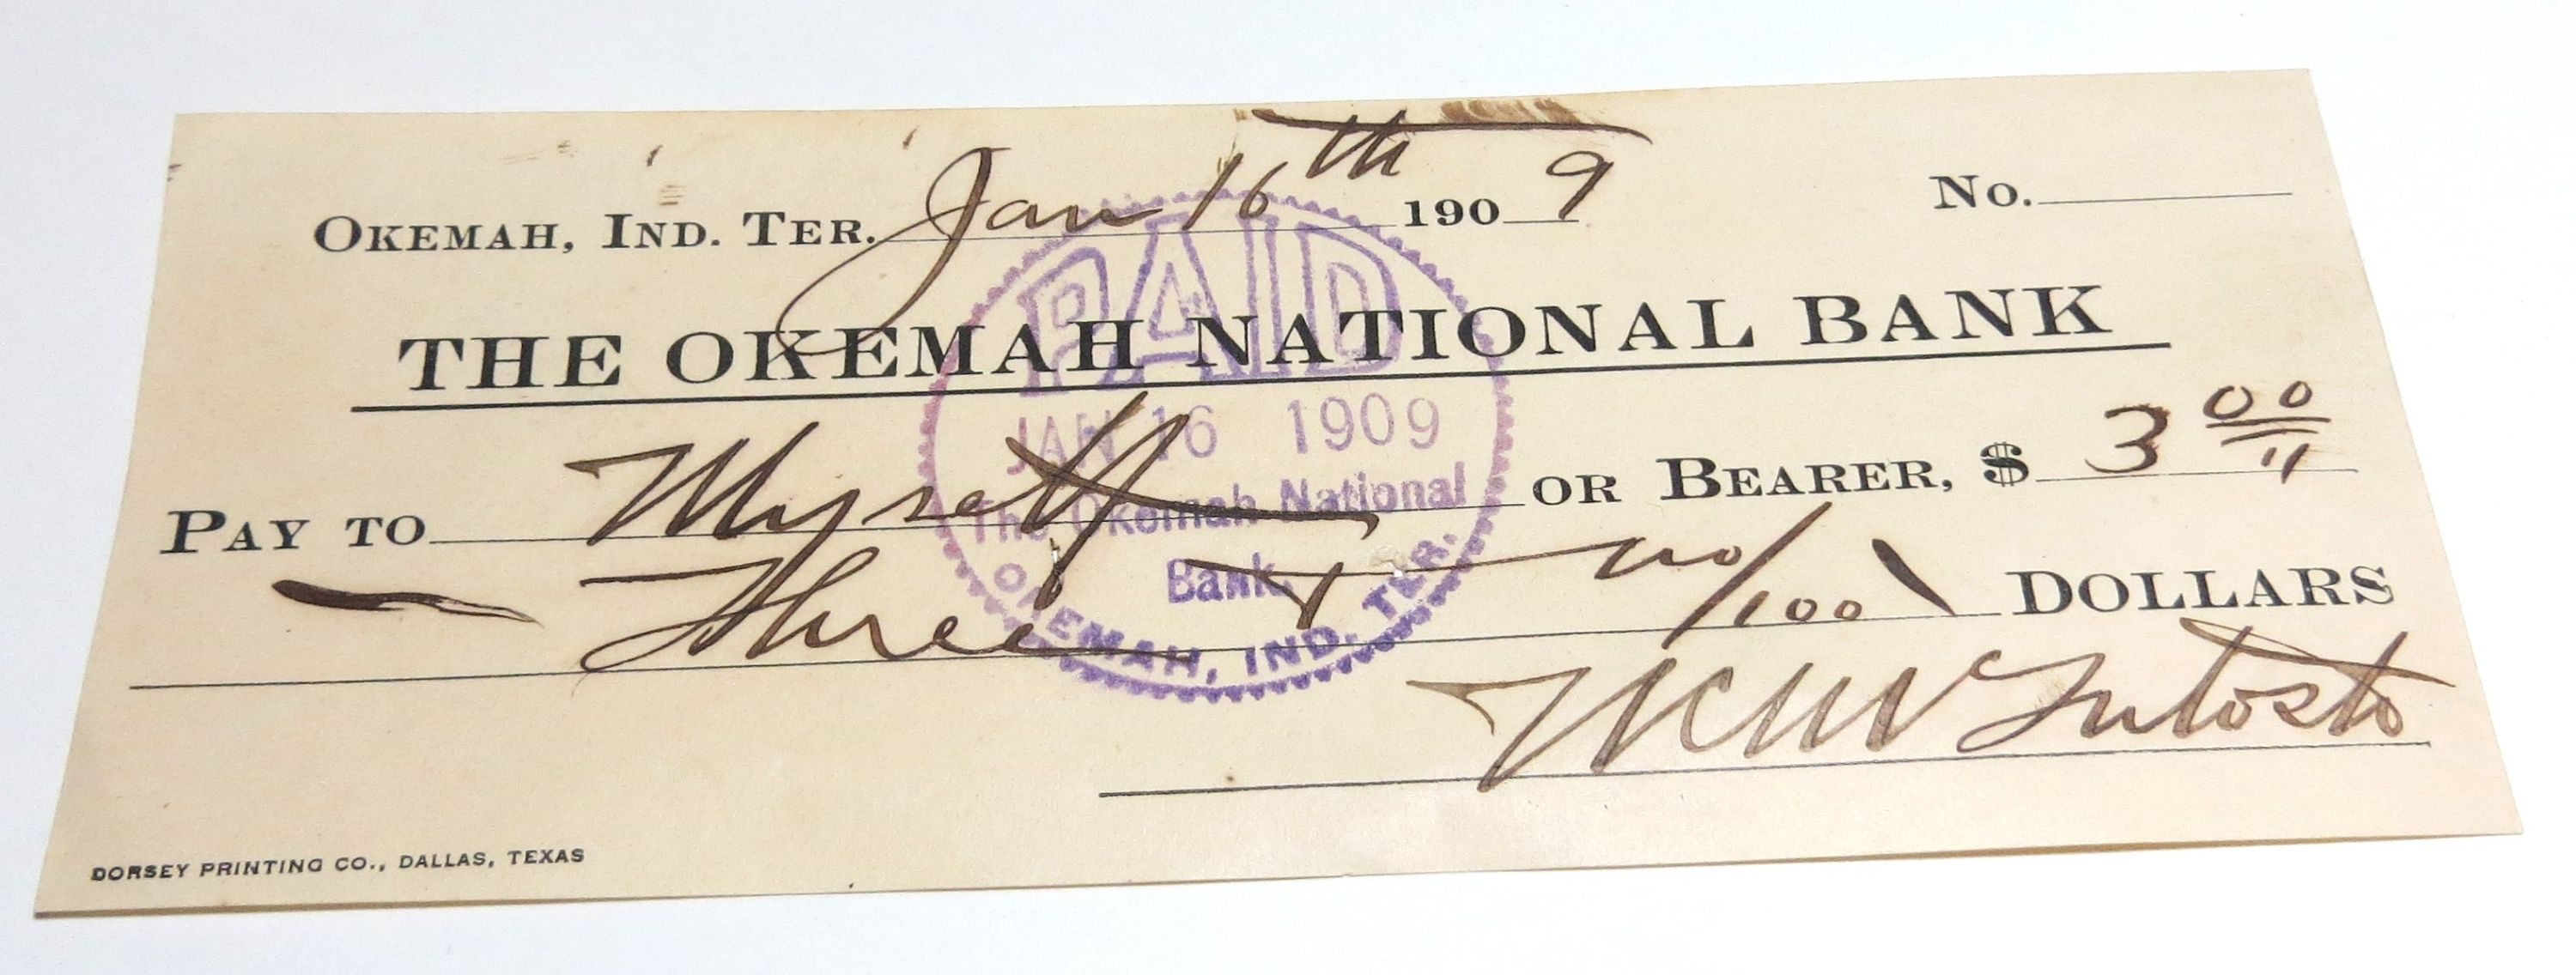 OKEMAH, IND. TER. Jan 16th 1909 No.
THE OKEMAH NATIONAL BANK
PAID
JAN 16 1909
The Okemah National
Bank.
OKEMAH, IND. TER.
PAY TO Myself OR BEARER, $ 3 00
Three & no/100 DOLLARS
McIntosh
DORSEY PRINTING CO., DALLAS, TEXAS